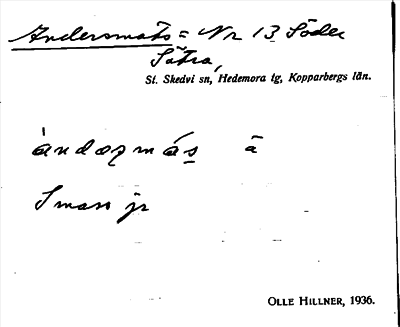 Andersmats = Nr 13 Söder
Sätra,
St. Skedvi sn, Hedemora tg, Kopparbergs län.
àndaʐmás ā
Sman jr
OLLE HILLNER, 1936.